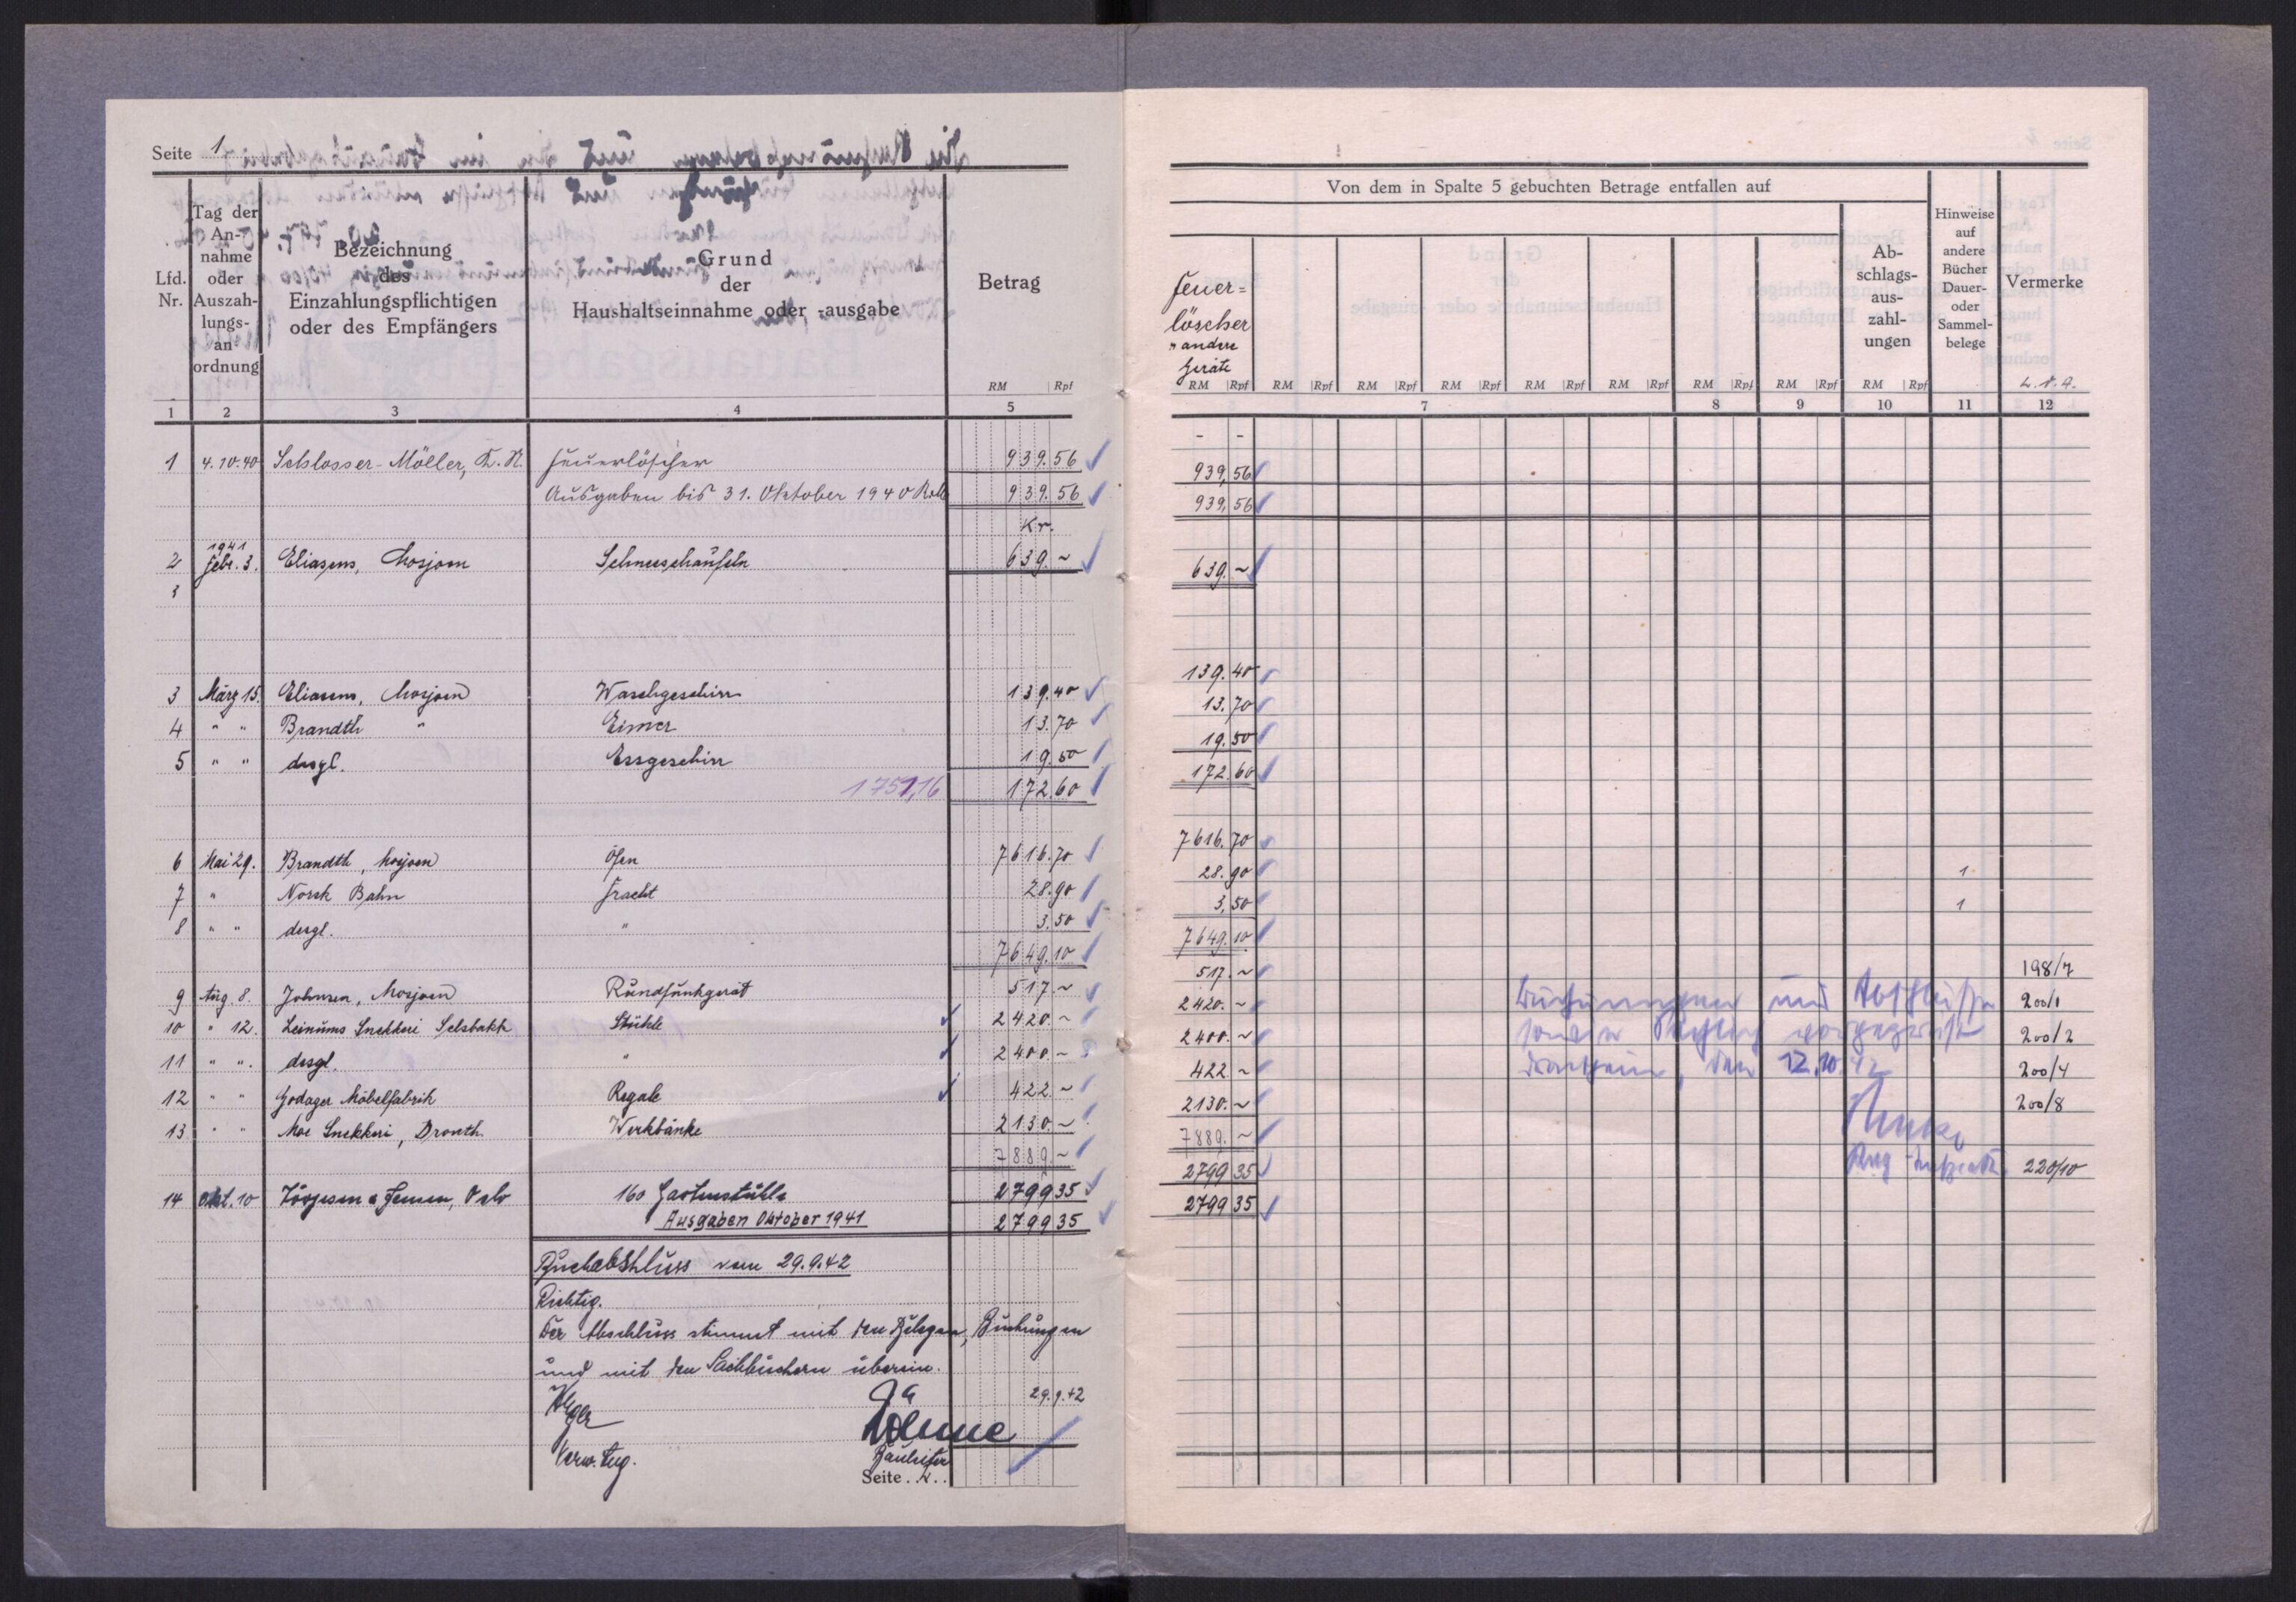 Seite 1
Lfd. Nr.
Tag der An-
nahme
oder
Auszah-
lungs-
an-
ordnung
Bezeichnung
des
Einzahlungspflichtigen
oder des Empfängers
Grund
der
Haushaltseinnahme oder -ausgabe
Betrag
RM Rpf
1 2 3 4 5
1 4.10.40 Schlosser-Möller, K. N. Feuerlöscher 939.56
Ausgaben bis 31. Oktober 1940 939.56
Kr.
1941
2 Febr. 3. Eliasens, Mosjoen Schneeschaufeln 639.~
3
3 März 15. Eliasens, Mosjoen Waschgeschirr 139.40
4 " " Brandth " Eimer 13.70
5 " " desgl. Essgeschirr 19.50
1751,16 172.60
6 Mai 29. Brandth, Mosjoen Öfen 7616.70
7 " Norsk Bahn Fracht 28.90
8 " " desgl. " 3.50
7649.10
9 Aug. 8. Johnsen, Mosjoen Rundfunkgerät 517.~
10 " 12. Leinums Snekkeri Selsbakh Stühle 2420.~
11 " " desgl. " 2400.~
12 " " Godager Möbelfabrik Regale 422.~
13 " " Moe Snekkeri, Dronth. Werkbänke 2130.~
7889.~
14 Okt. 10 Jensen, Oslo 160 Gartenstühle 2799 35
Ausgaben Oktober 1941 2799 35
Buchabschluss vom 29.9.42
Richtig.
Der Abschluss stimmt mit den Belegen, Buchungen
und mit den Sachbüchern überein.
29.9.42
Verw. Ang.
Bauleiter
Seite
Von dem in Spalte 5 gebuchten Betrage entfallen auf
Feuer=
löscher
u andere
Geräte
RM Rpf RM Rpf RM Rpf RM Rpf RM Rpf RM Rpf RM Rpf RM Rpf RM Rpf
Ab-
schlags-
aus-
zahl-
ungen
Hinweise
auf
andere
Bücher
Dauer-
oder
Sammel-
belege
Vermerke
7 8 9 10 11 12
- -
939,56
939,56
639.~
139.40
13.70
19.50
172.60
7616.70
28.90 1
3,50 1
7649.10
517.~ 198/7
2420.~ Buchungen und Abschlüsse 200/1
2400.~ 200/2
422.~ den 12.10.42 200/4
2130.~ 200/8
7889.~
2799 35 220/10
2799 35